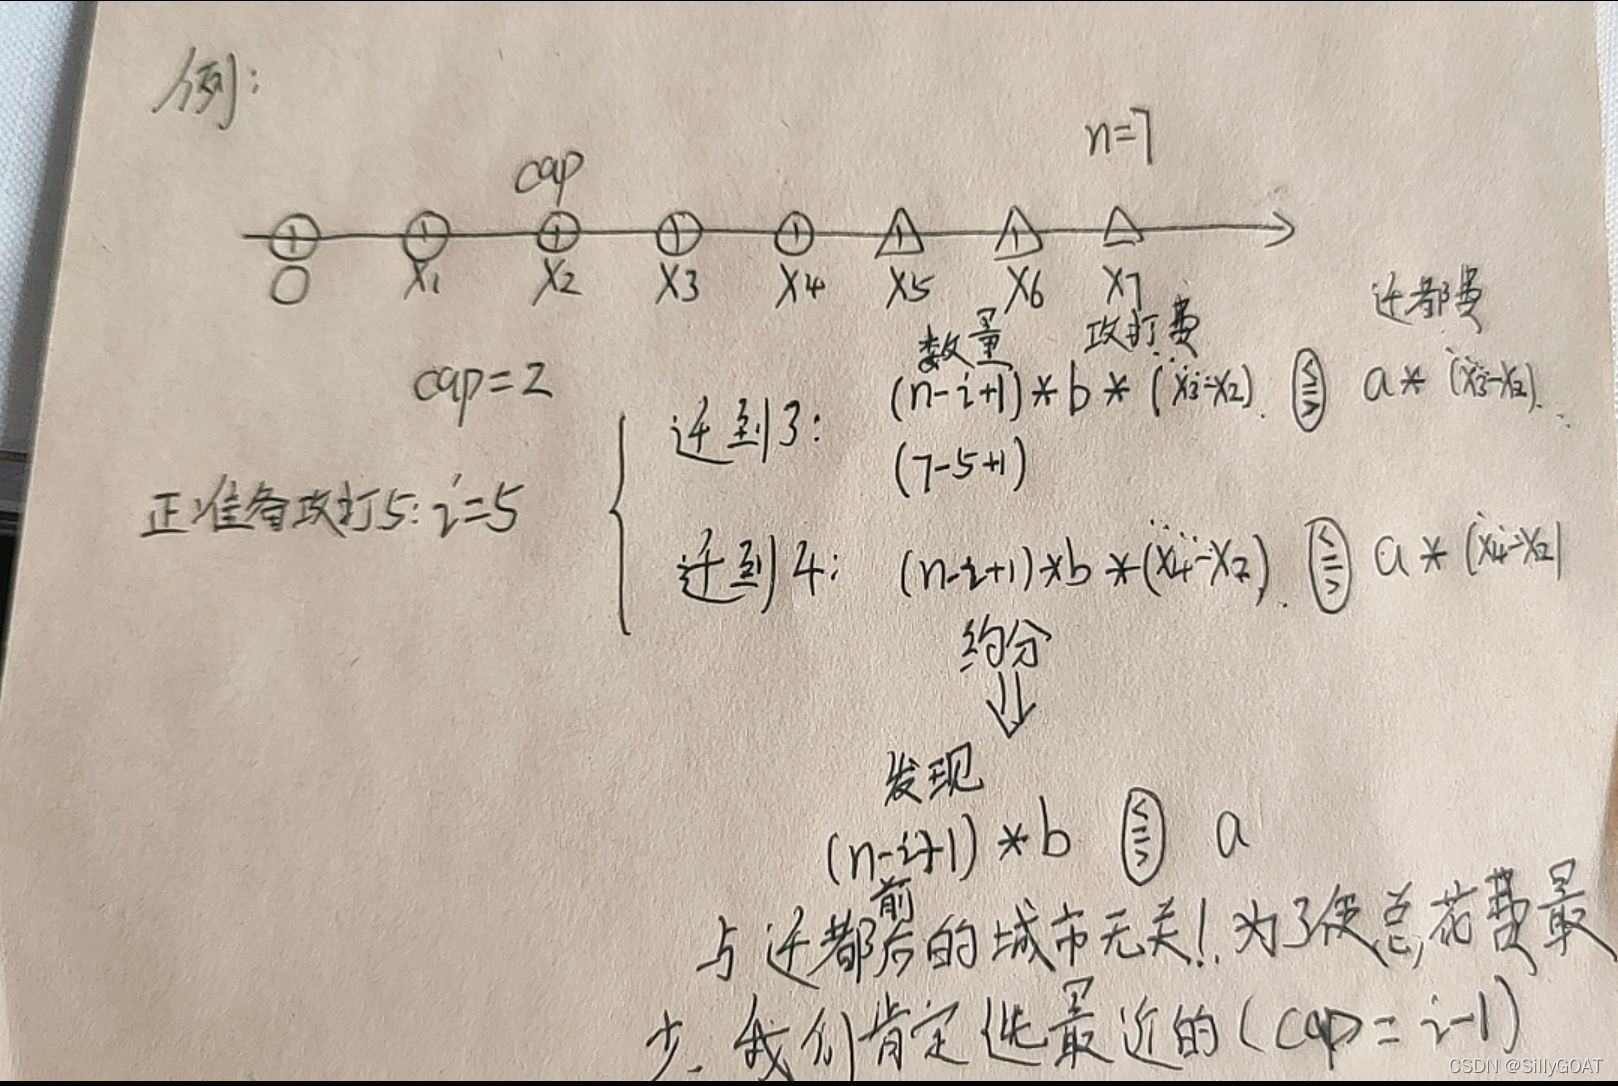 例:
n=7
cap
0 X1 X2 X3 X4 X5 X6 X7
数量 攻打费 迁都费
cap=2
迁到3: (n-i+1)*b*(X3-X2) <=> a*(X3-X2)
(7-5+1)
正准备攻打5: i=5
迁到4: (n-i+1)*b*(X4-X2) <=> a*(X4-X2)
约分
发现
(n-i+1)*b <=> a
与迁都前后的城市无关!为了使总花费最
少,我们肯定选最近的(cap=i-1)
CSDN @SillyGOAT